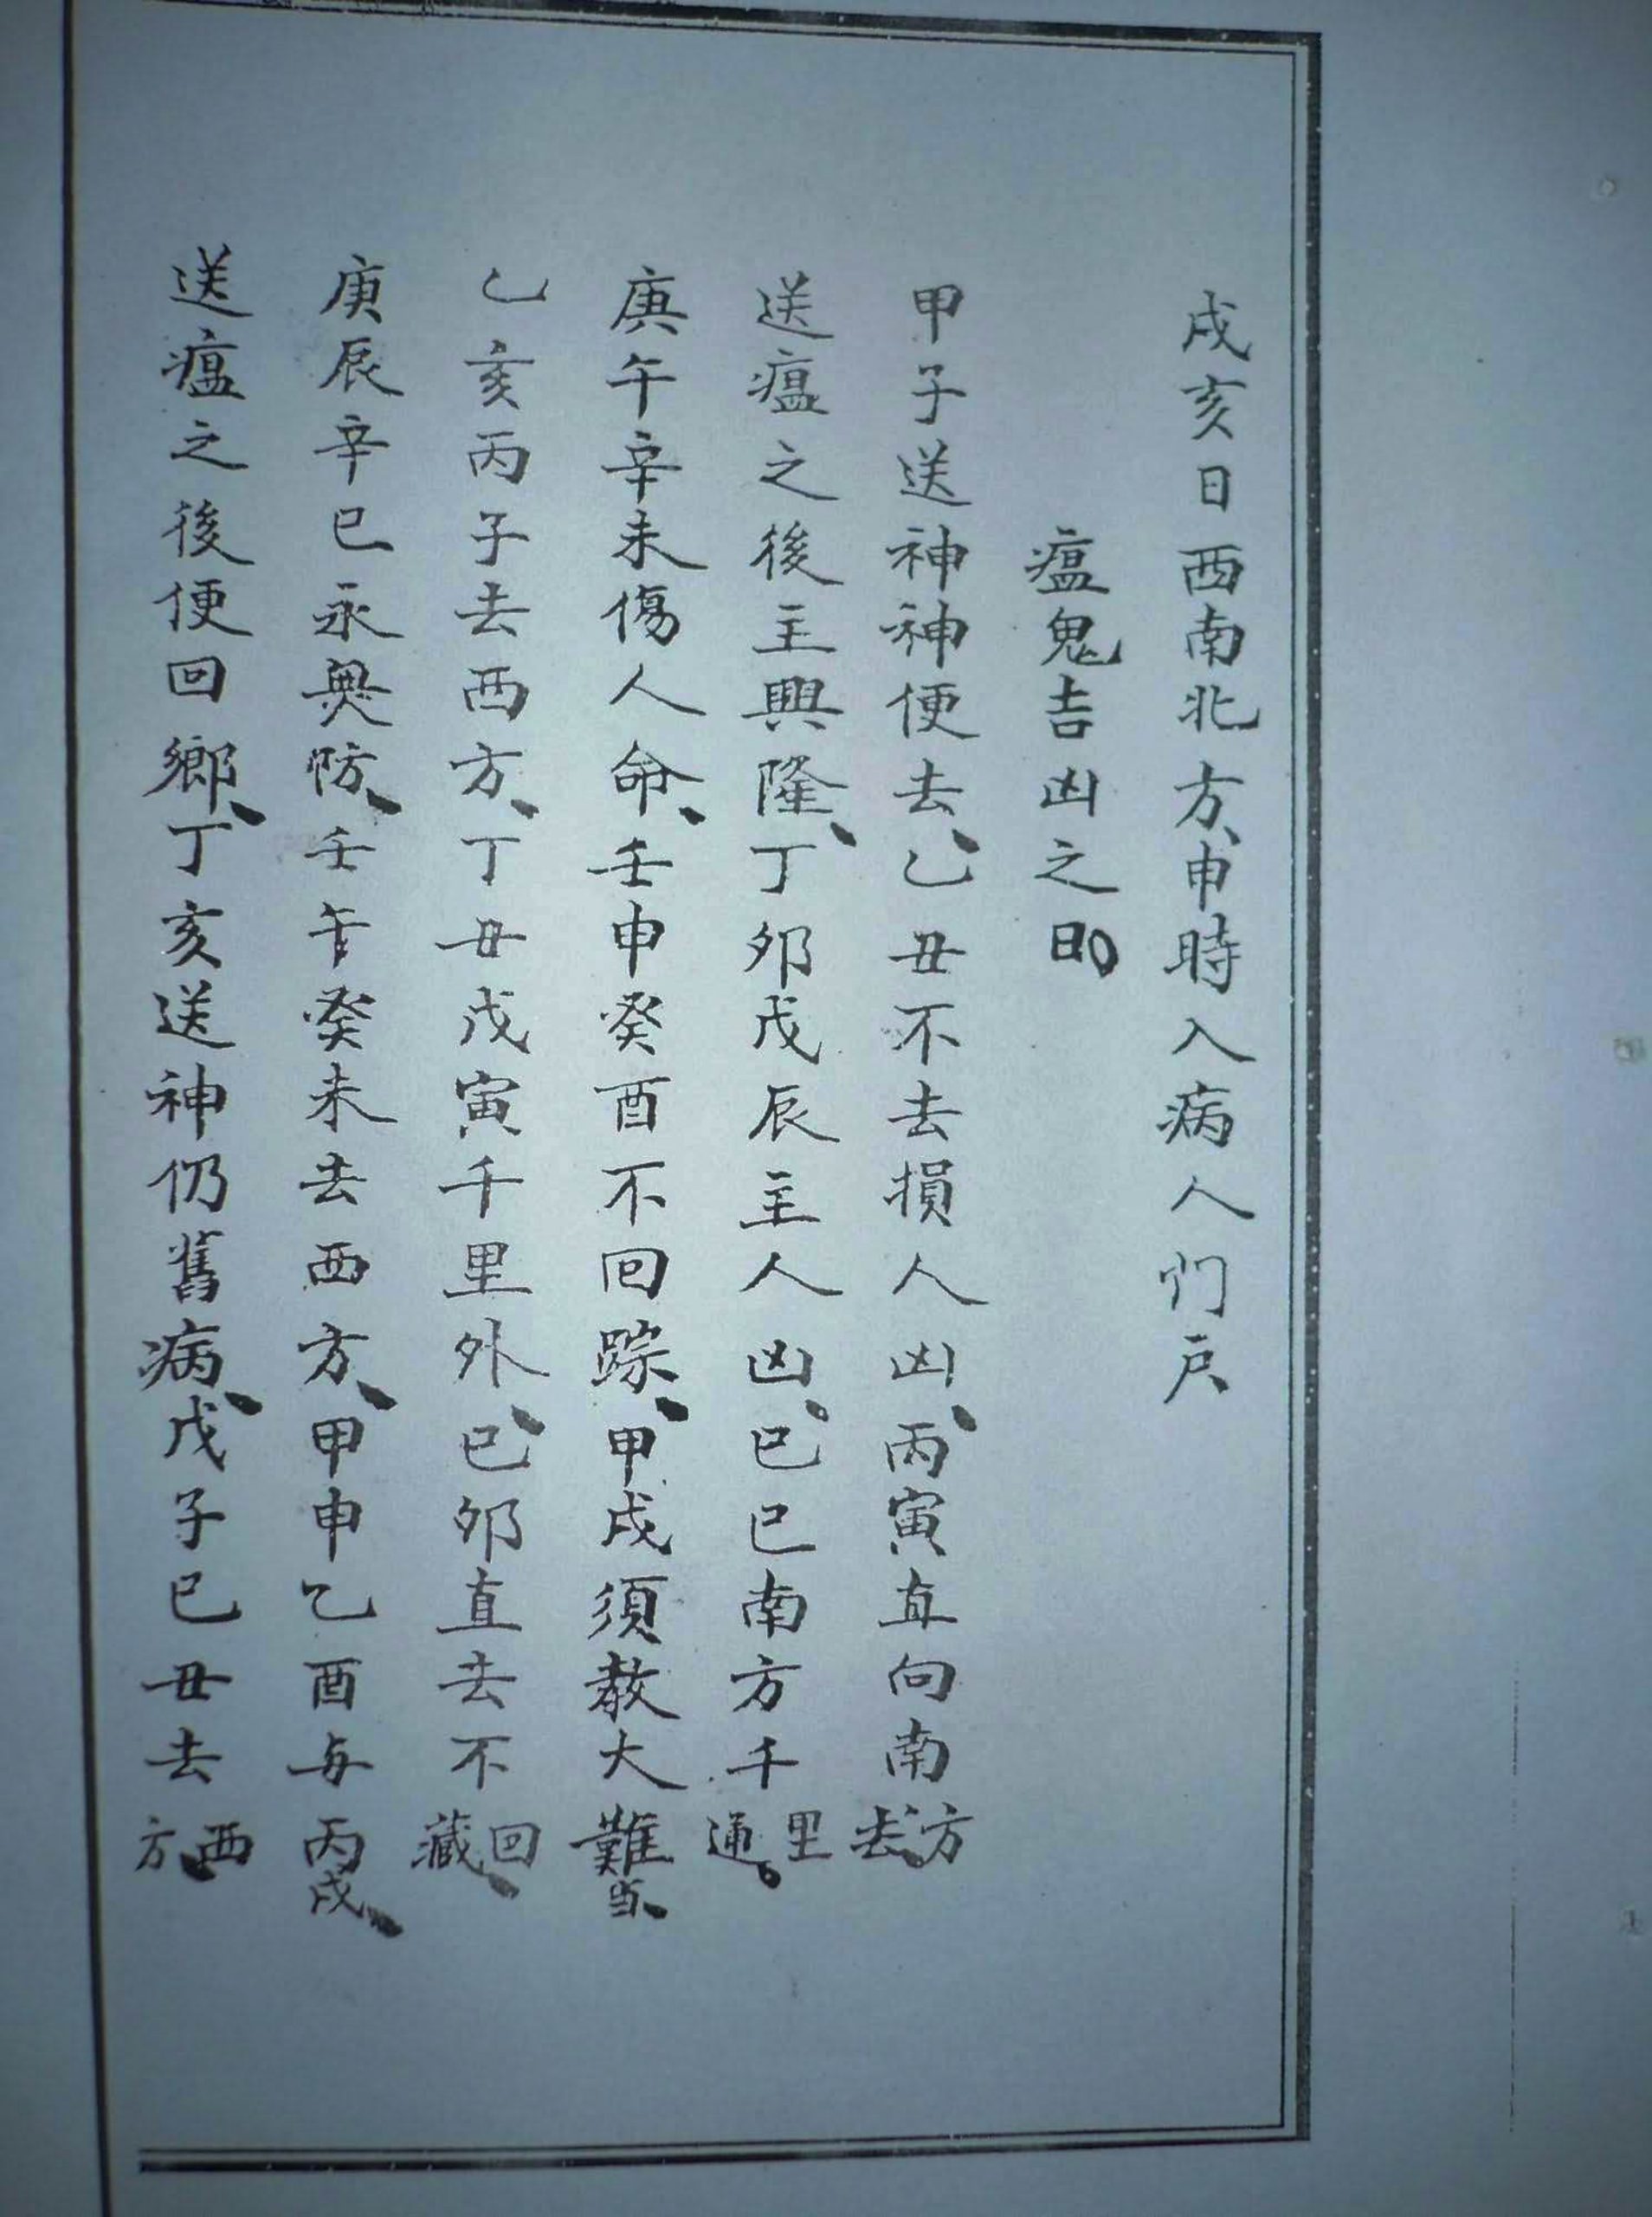 戌亥日西南北方、申時入病人们户
瘟鬼吉凶之日。
甲子送神神便去、乙丑不去損人凶、丙寅直向南方去。
送瘟之後主興隆、丁卯戊辰主人凶。巳巳南方千里通。
庚午辛未傷人命、壬申癸酉不回踪、甲戌須教大難当、
乙亥丙子去西方、丁丑戊寅千里外、巳卯直去不回藏、
庚辰辛巳永無防、壬午癸未去西方、甲申乙酉与丙戌、
送瘟之後便回鄉、丁亥送神仍舊病、戊子巳丑去西方、